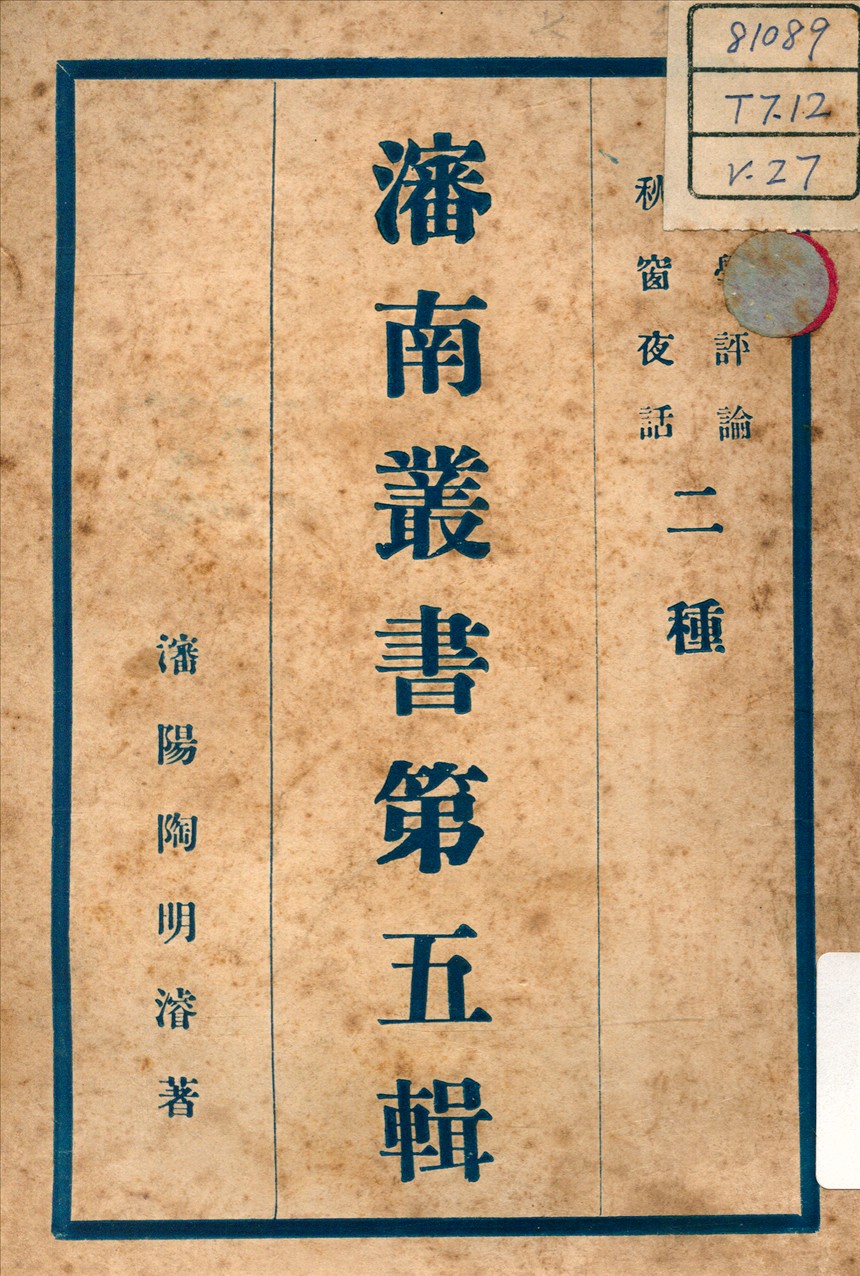 81089
T7.12
V.27
評論
秋窗夜話
二種
瀋南叢書第五輯
瀋陽陶明濬著